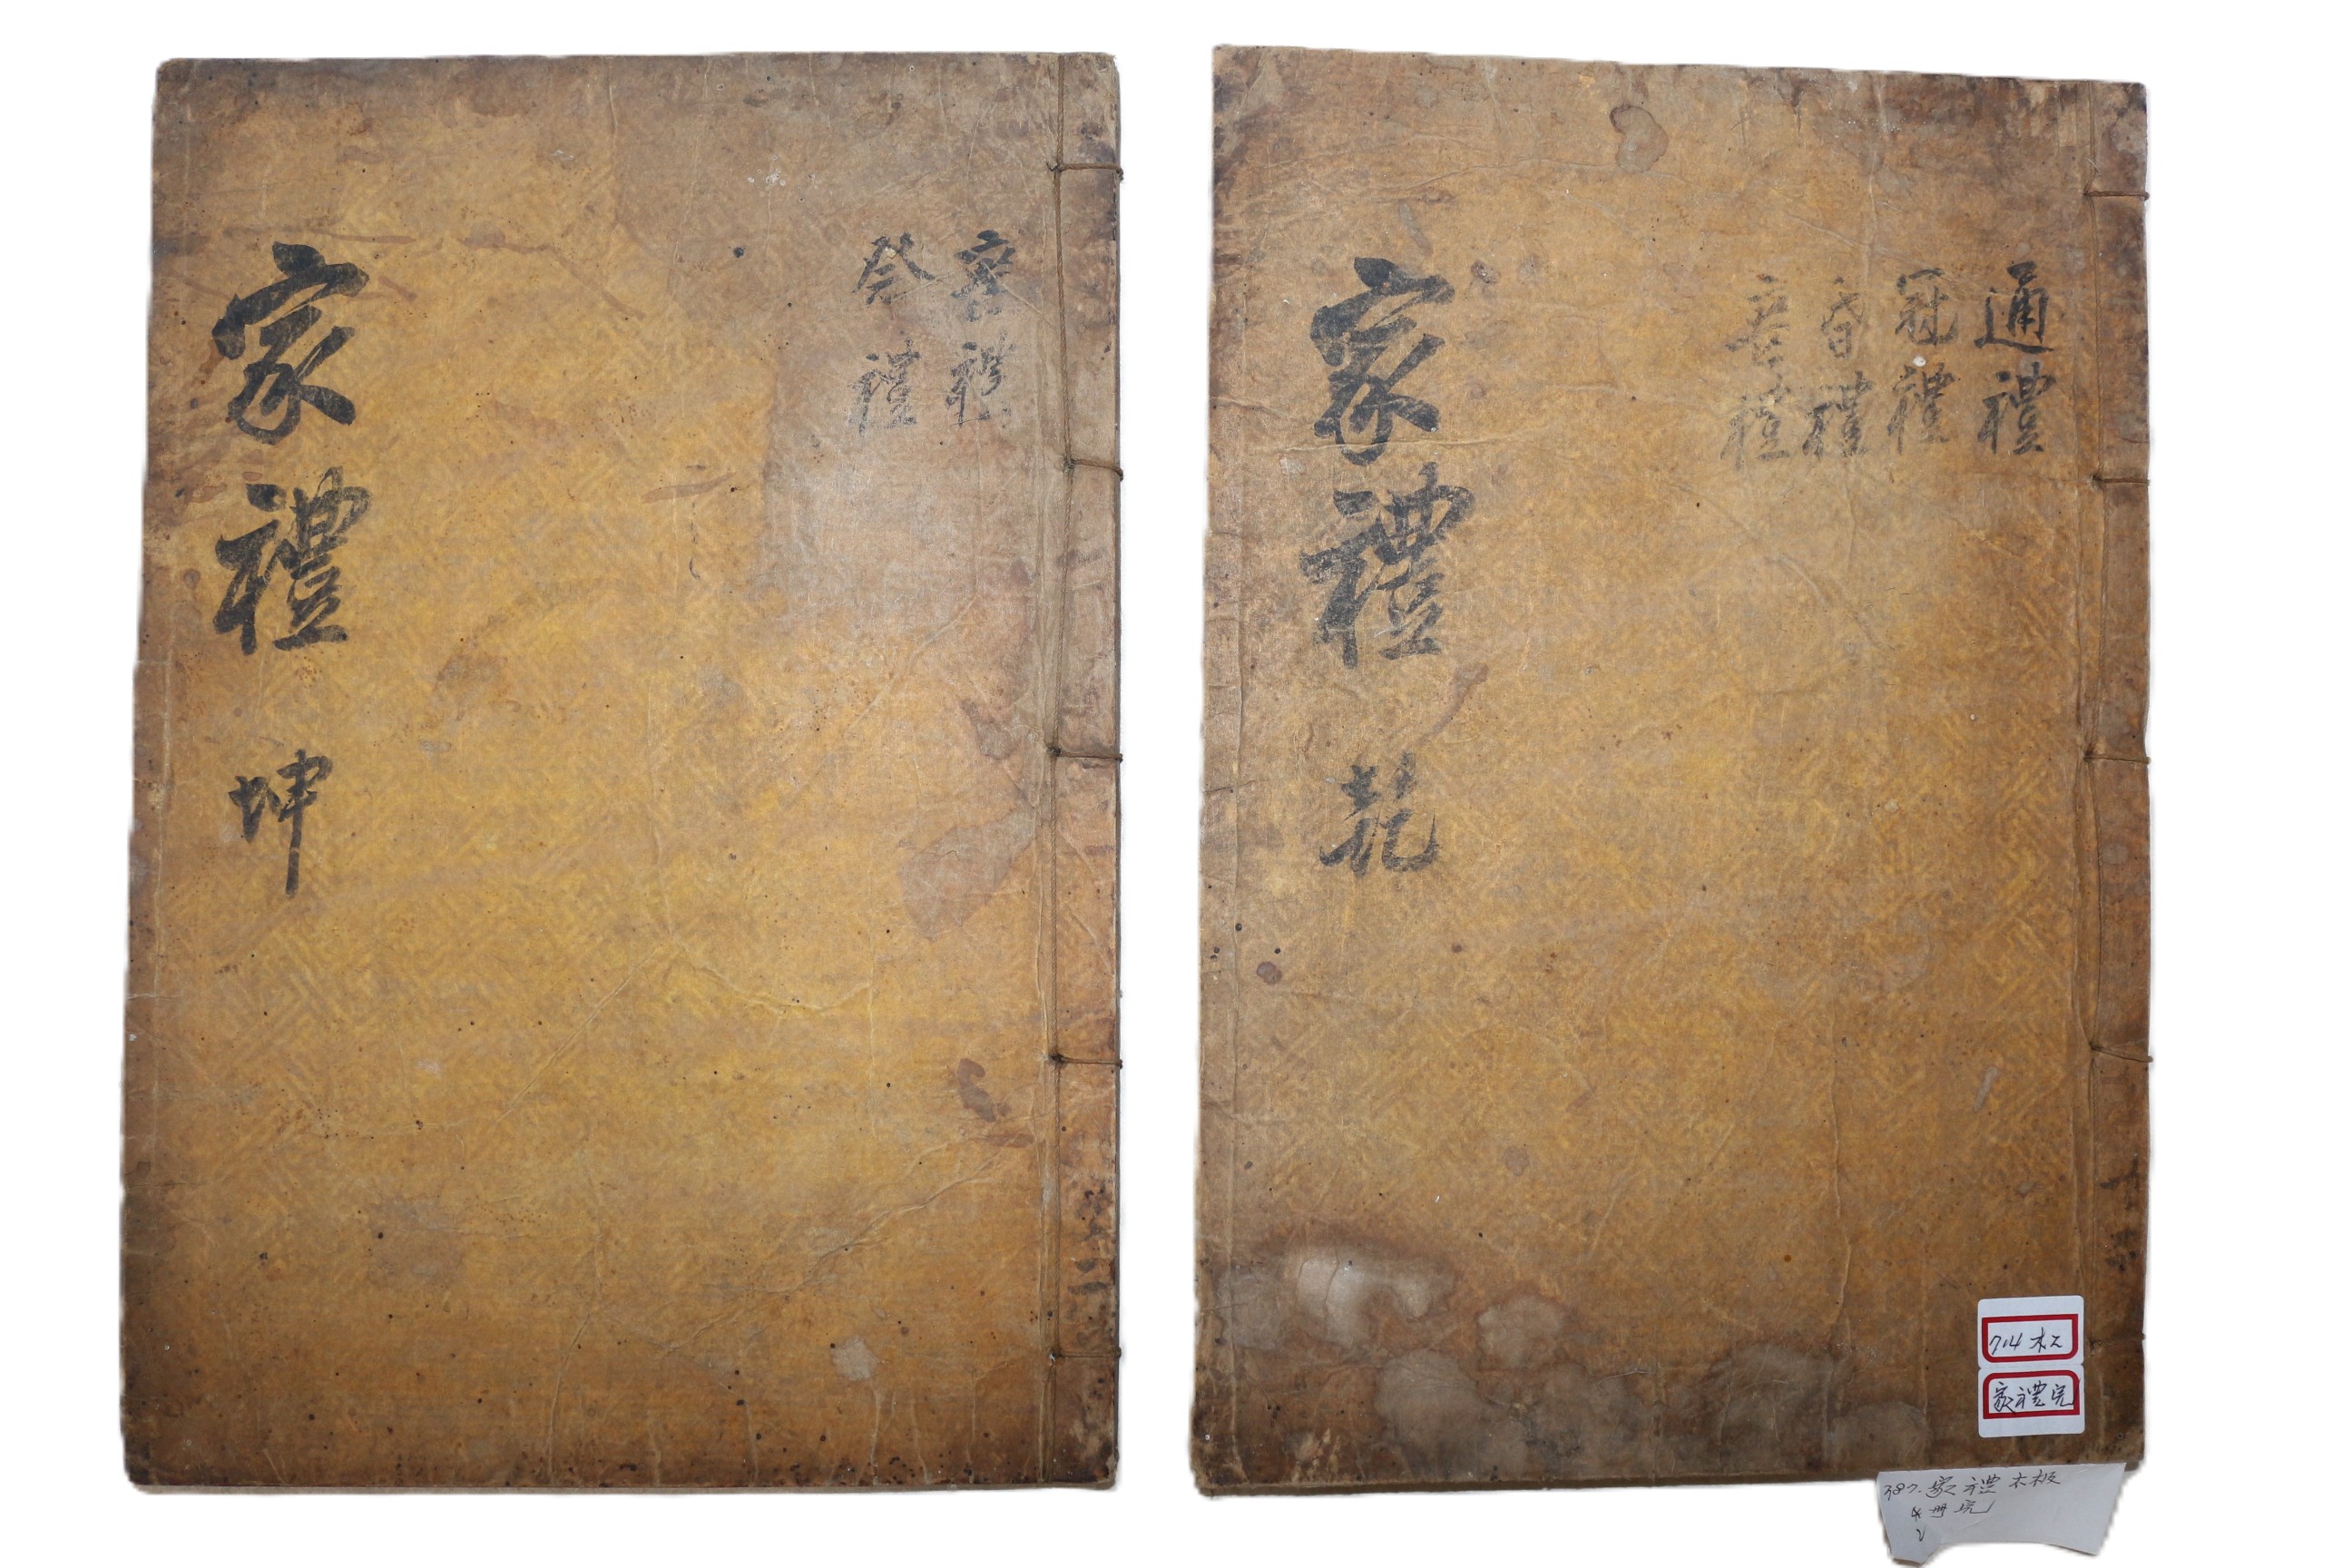 家禮 乾
通禮
冠禮
昏禮
喪禮
家禮 坤
喪禮
祭禮
家禮完
387. 家禮 木板
冊完